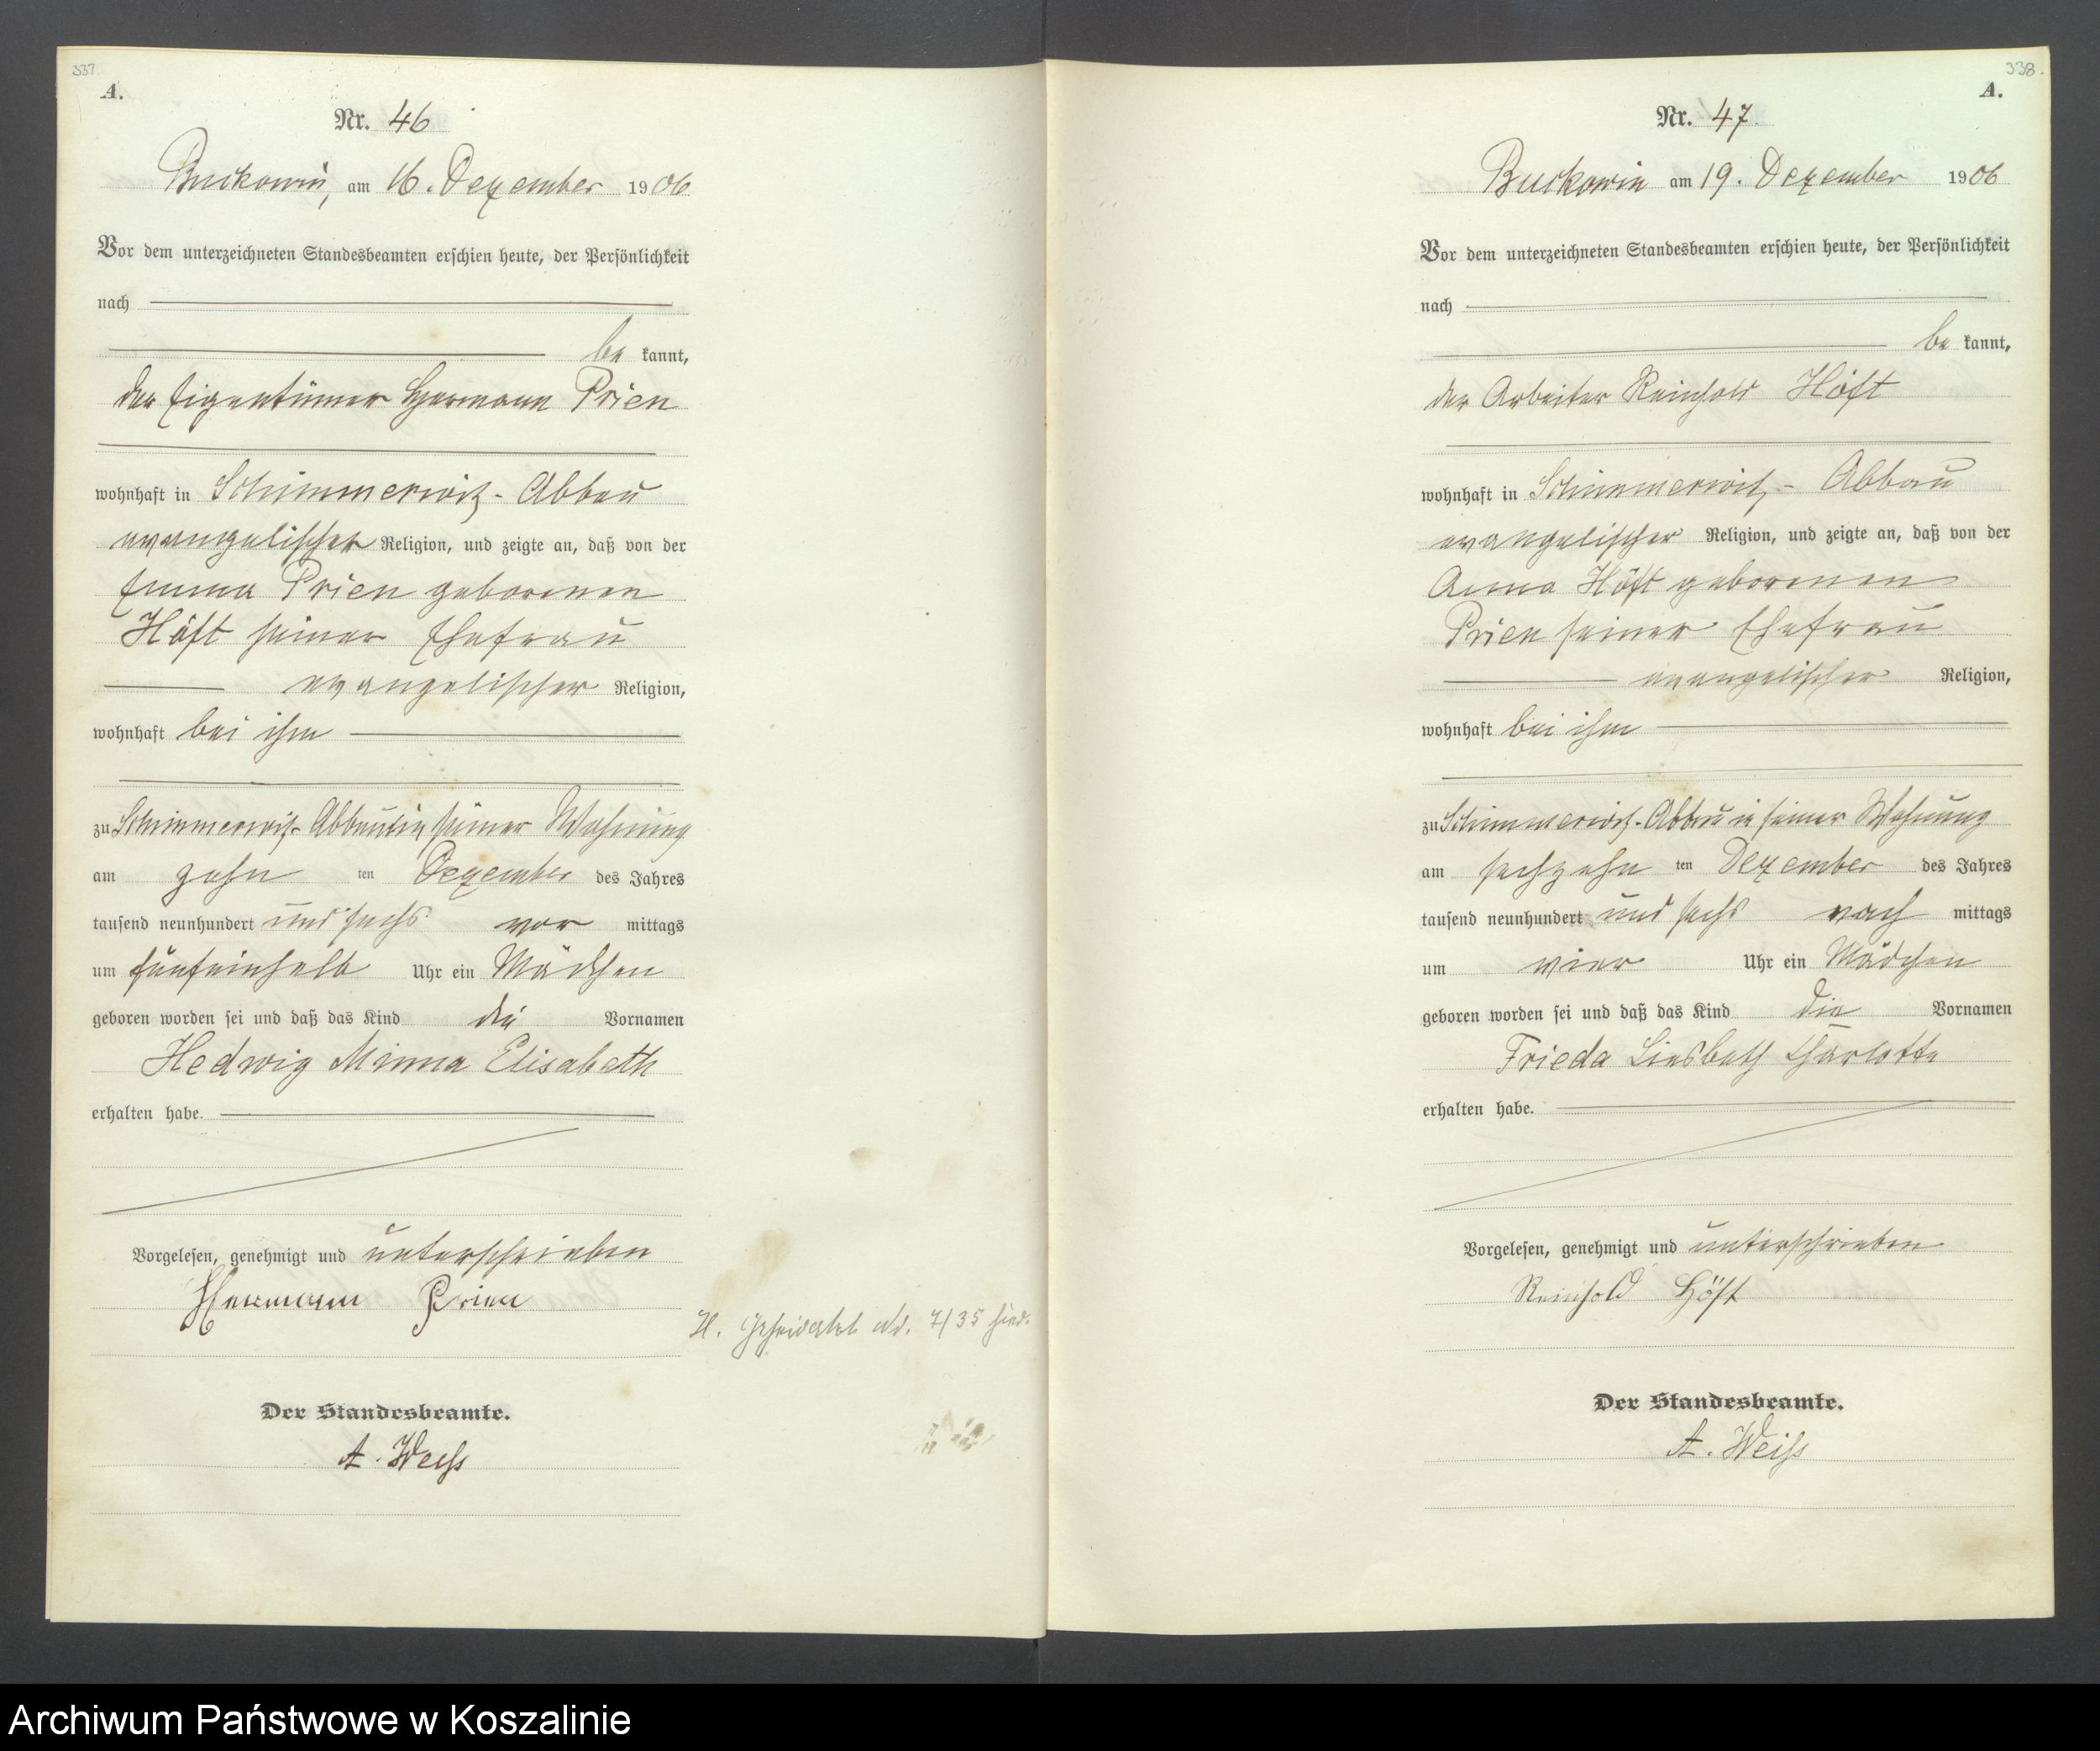 337
A.
Nr. 46
Buckowin, am 16. Dezember 1906
Vor dem unterzeichneten Standesbeamten erschien heute, der Persönlichkeit
nach
be kannt,
der Eigentümer Hermann Prien
wohnhaft in Schimmerwitz - Abbau
evangelischer Religion, und zeigte an, daß von der
Emma Prien geborenen
Höft seiner Ehefrau
evangelischer Religion,
wohnhaft bei ihm
zu Schimmerwitz-Abbau in seiner Wohnung
am zehn ten Dezember des Jahres
tausend neunhundert und sechs vor mittags
um fünfeinhalb Uhr ein Mädchen
geboren worden sei und daß das Kind die Vornamen
Hedwig Minna Elisabeth
erhalten habe.
Vorgelesen, genehmigt und unterschrieben
Hermann Prien
H. 7/35
Der Standesbeamte.
A. Weiß
338.
A.
Nr. 47.
Buckowin am 19. Dezember 1906
Vor dem unterzeichneten Standesbeamten erschien heute, der Persönlichkeit
nach
be kannt,
der Arbeiter Reinhold Höft
wohnhaft in Schimmerwitz - Abbau
evangelischer Religion, und zeigte an, daß von der
Anna Höft geborenen
Prien seiner Ehefrau
evangelischer Religion,
wohnhaft bei ihm
zu Schimmerwitz-Abbau in seiner Wohnung
am sechzehn ten Dezember des Jahres
tausend neunhundert und sechs nach mittags
um vier Uhr ein Mädchen
geboren worden sei und daß das Kind die Vornamen
Frieda Liesbeth Charlotte
erhalten habe.
Vorgelesen, genehmigt und unterschrieben
Reinhold Höft
Der Standesbeamte.
A. Weiß
Archiwum Państwowe w Koszalinie